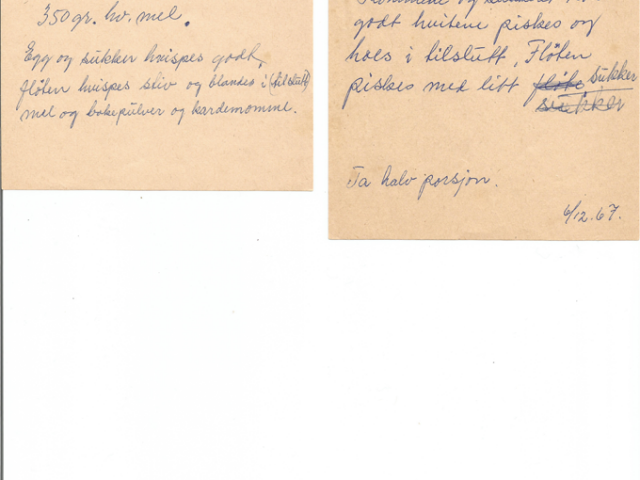 350 gr. hv. mel.
Egg og sukker hvispes godt,
fløten hvispes stiv og blandes i (tilslutt)
mel og bakepulver og kardemomme.
Plommene og
godt hvitene piskes og
haes i tilslutt, Fløten
piskes med litt sukker
sukker
Ta halv porsjon.
6/12.67.